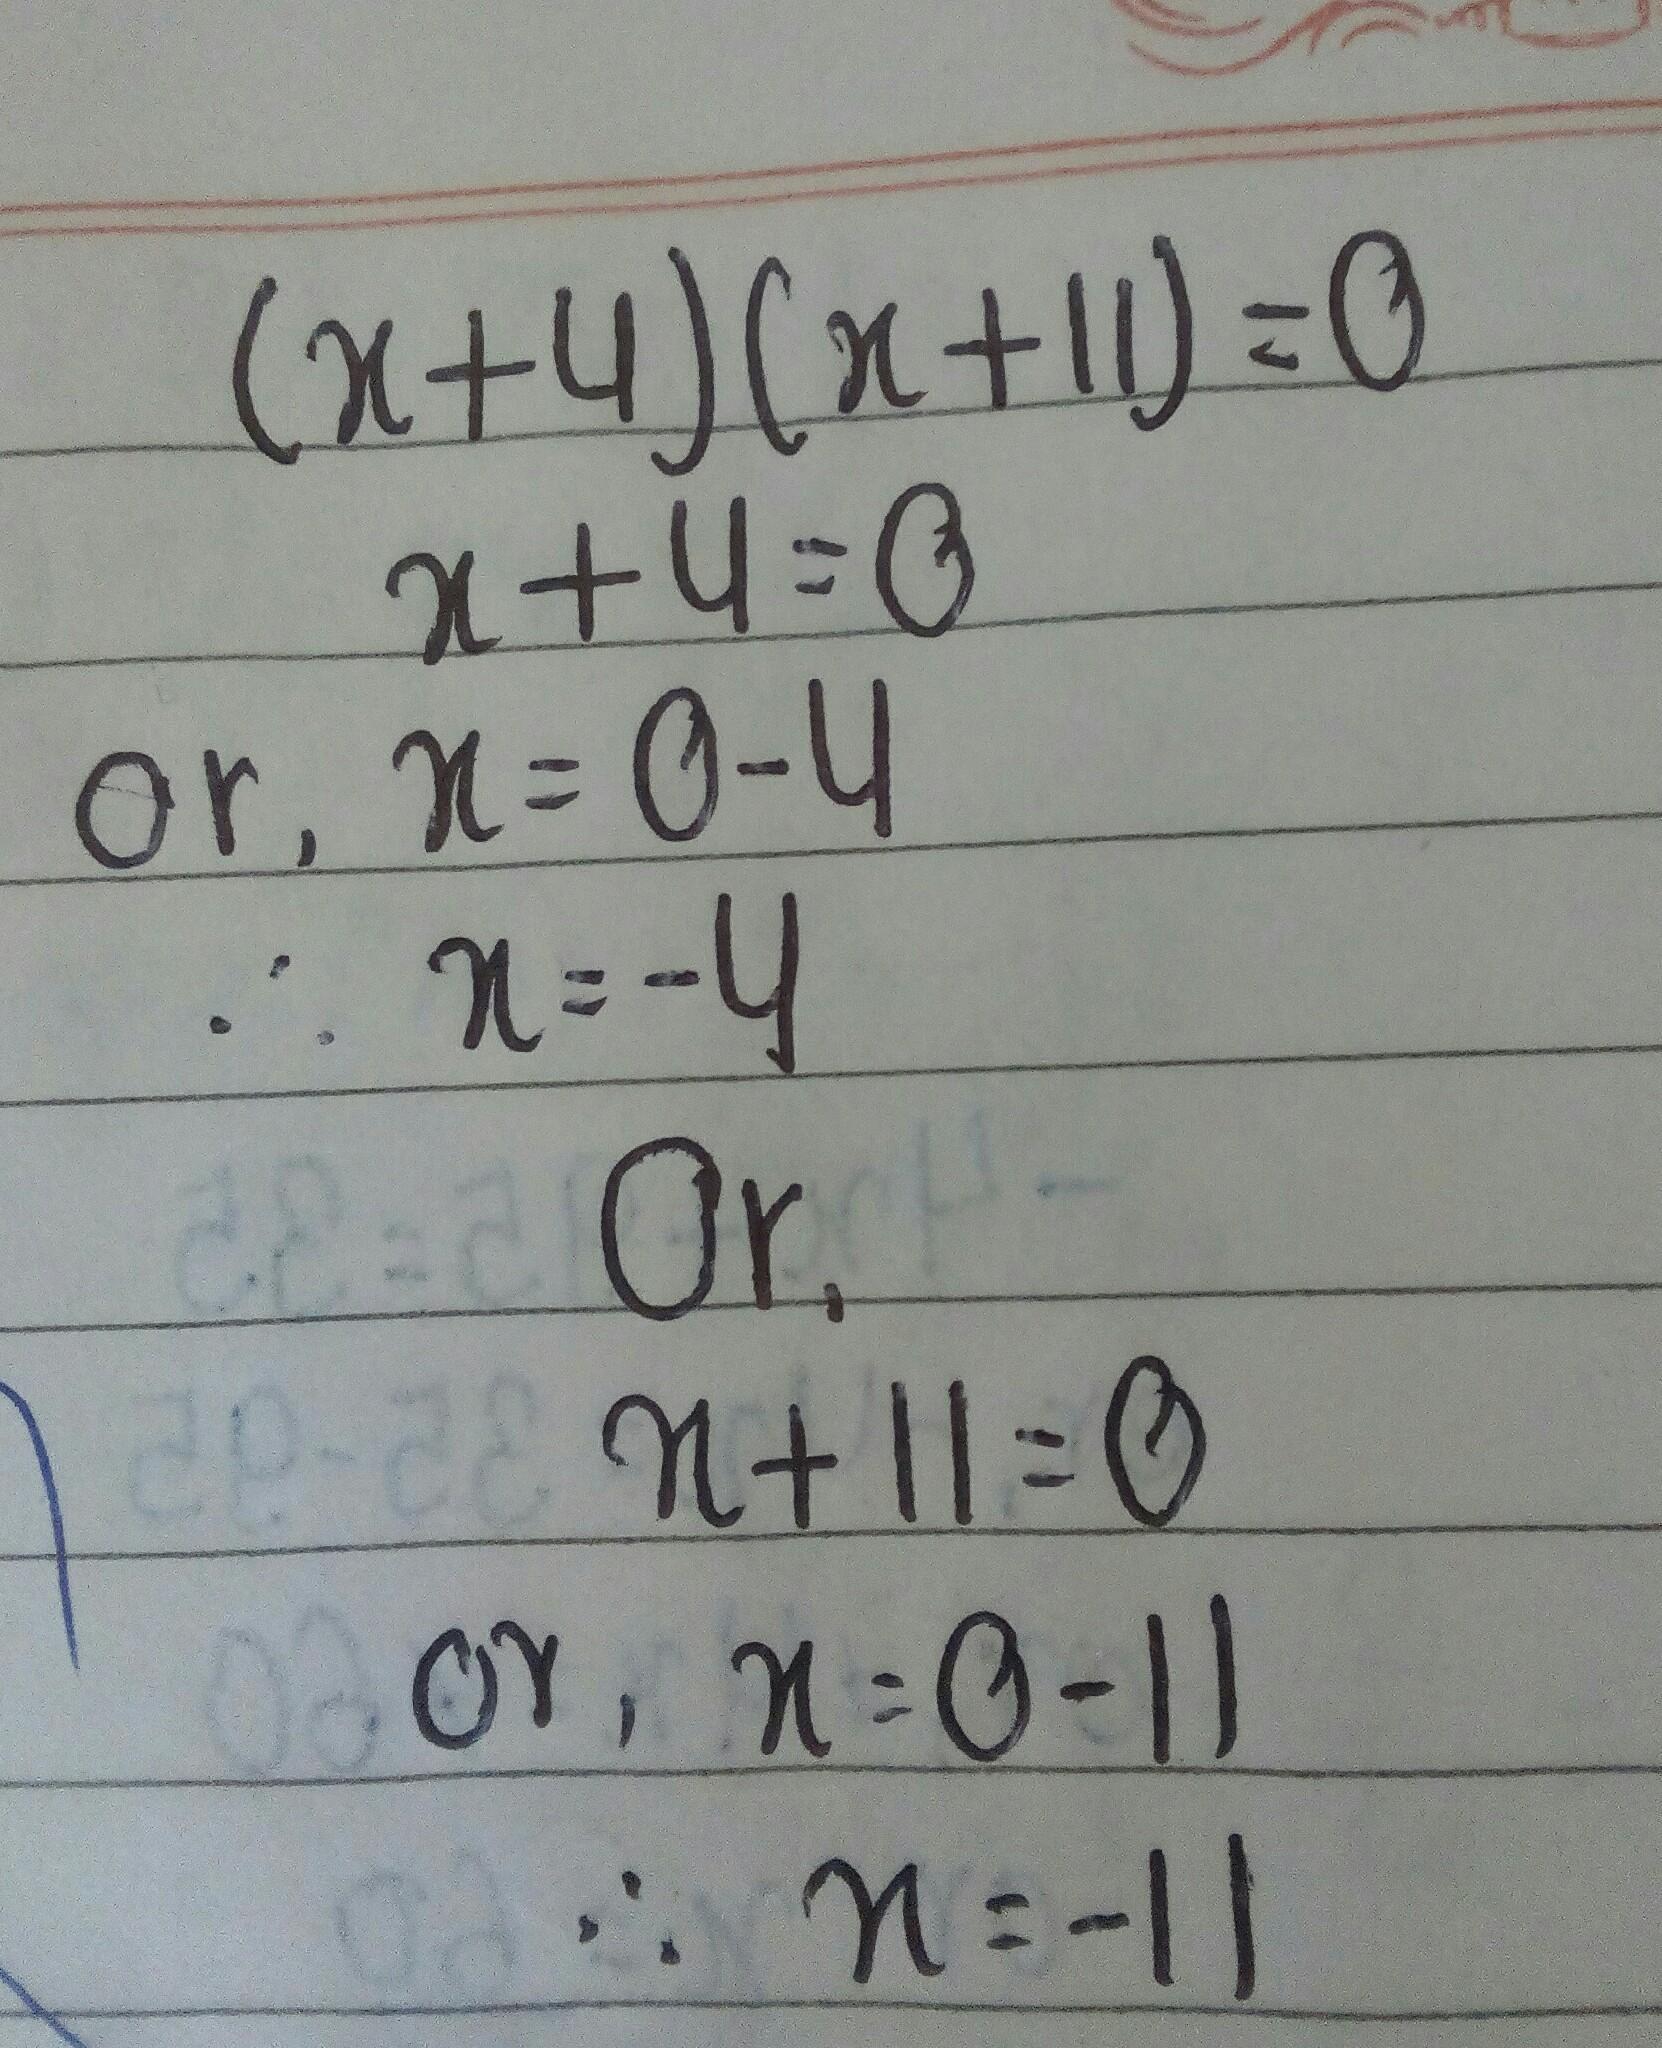 (x+4)(x+11)=0
x+4=0
or, x=0-4
∴ x=-4
Or,
x+11=0
or, x=0-11
∴ x=-11